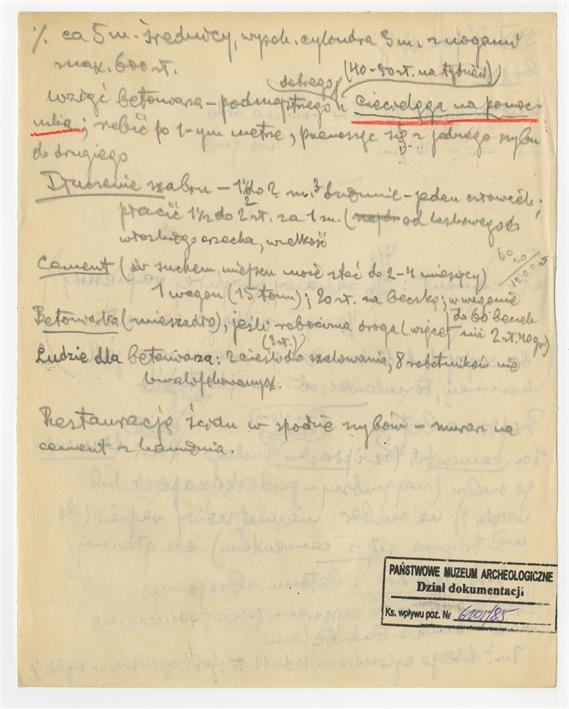 ‰ ca 5 m. średnicy, wysok. cylindra 3 m. z nogami
max. 600 zł.
dobrego (40-90 zł. na tydzień)
wziąć betoniarza - podmajstrzego i cieślę na pomoc
; robić po 1-ym metrze, przenosząc się z jednego szybu
do drugiego
Tłuczenie szabru - 1½ do 2 m.³ dziennie - jeden człowiek,
płacić 1½ do 2 zł. za 1 m. ( od laskowego do
włoskiego orzecha, wielkość
Cement (w suchem miejscu może stać do 2-4 miesięcy)
1 wagon (15 tonn); 20 zł. na beczkę; w wagonie
do 60 beczek
60 20 / 1200 zł
Betoniarka (mieszadło), jeśli robocizna droga (więcej niż 2 zł. 40 gr)
(3 zł.)
Ludzie dla betoniarza: 2 cieśli do szalowania, 8 robotników nie
wykwalifikowanych.
Restaurację ścian w spodzie szybów - murar na
cement z kamienia.
PAŃSTWOWE MUZEUM ARCHEOLOGICZNE
Dział dokumentacji
Ks. wpływu poz. Nr